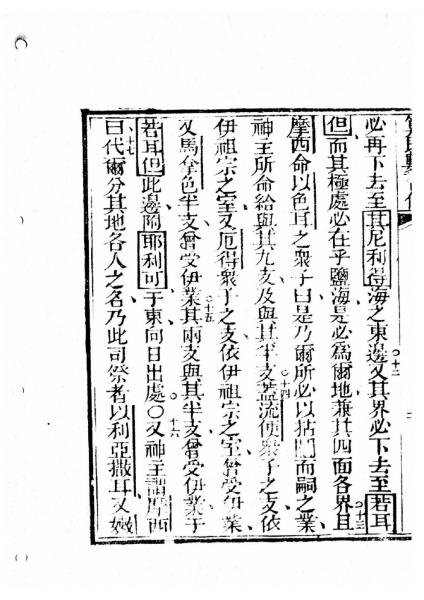 必再下去至其尼利得海之東邊又其界必下去至若耳
但而其極處必在乎鹽海是必為爾地兼其四面各界且
摩西命以色耳之衆子曰是乃爾所必以拈䦰而嗣之業
神主所命給與其九支及與其半支蓋流便衆子之支依
伊祖宗之室又厄得衆子之支依伊祖宗之室曾受伊業
又馬拿色半支曾受伊業其兩支與其半支曾受伊業于
若耳但此邊附耶利可于東向日出處〇又神主謂摩西
曰代爾分其地各人之名乃此司祭者以利亞撒耳又嫩
十二
十三
十四
十五
十六
十七